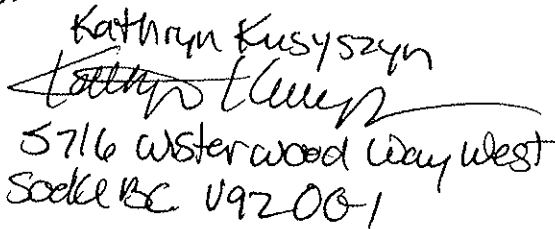 Kathryn Kusyszyn
5716 Wisterwood Way West
Sooke BC V9Z 0G1